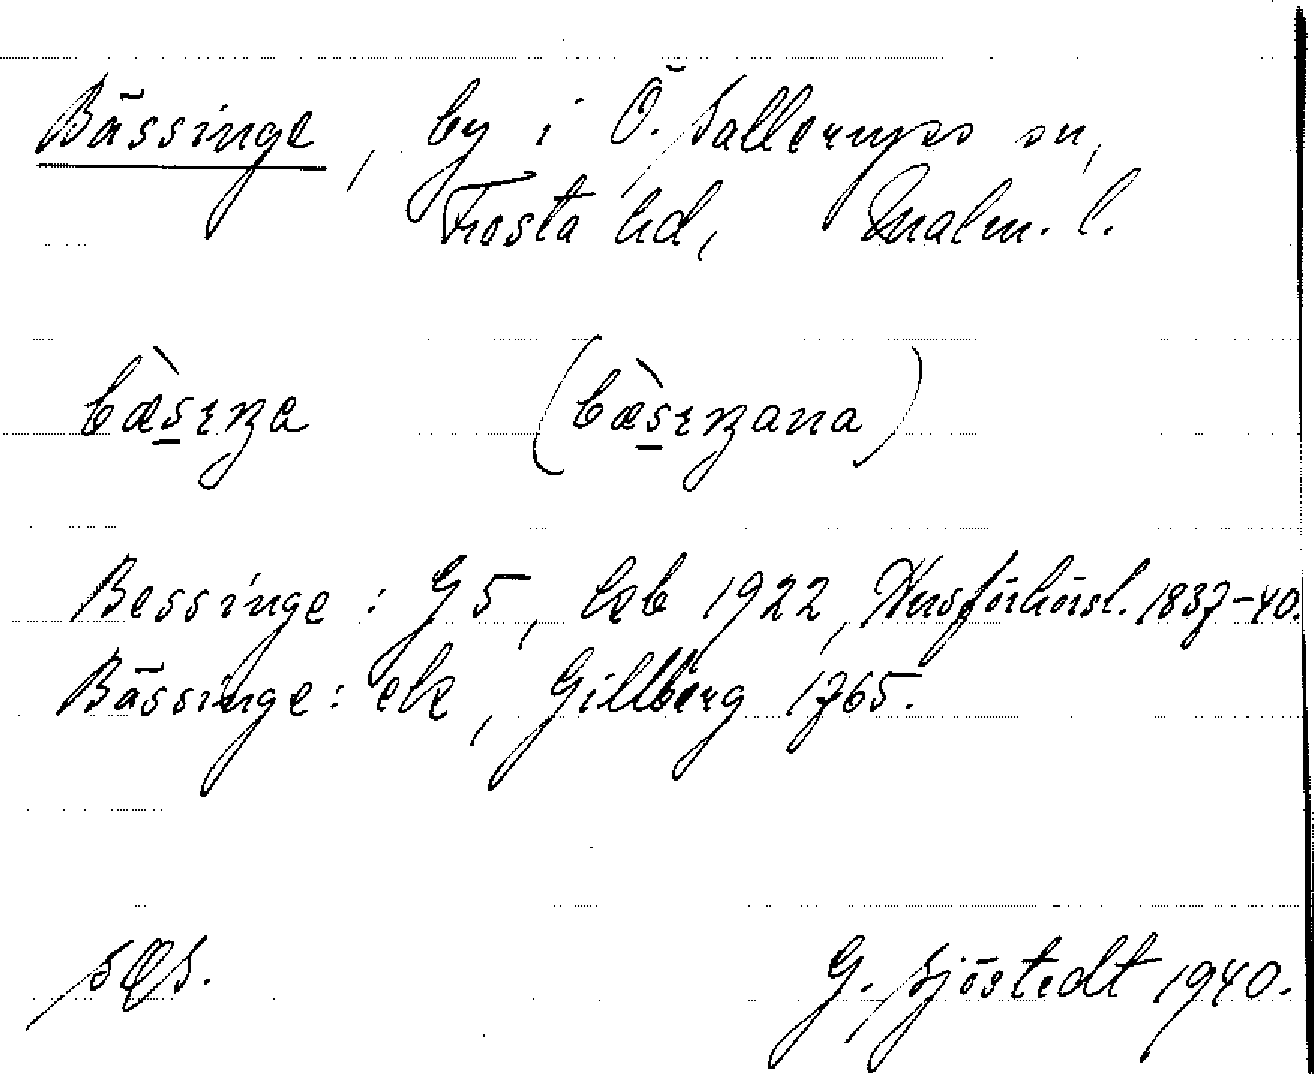 Bässinge, by i Ö. Sallerups sn,
Frosta hd, Malm. l.
bæ̀s̲ıŋa (bæ̀s̲ıŋana)
Bessinge: G 5, lεb 1922, Husförhörsl. 1837-40.
Bässinge: ek, Gillberg 1765.
G. Sjöstedt 1940.